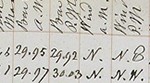 Bar A.M. Bar P.M. Wind A.M. Wind P.M.
29.95 29.92 N. N.E
1 29.97 30.03 N. N.W.